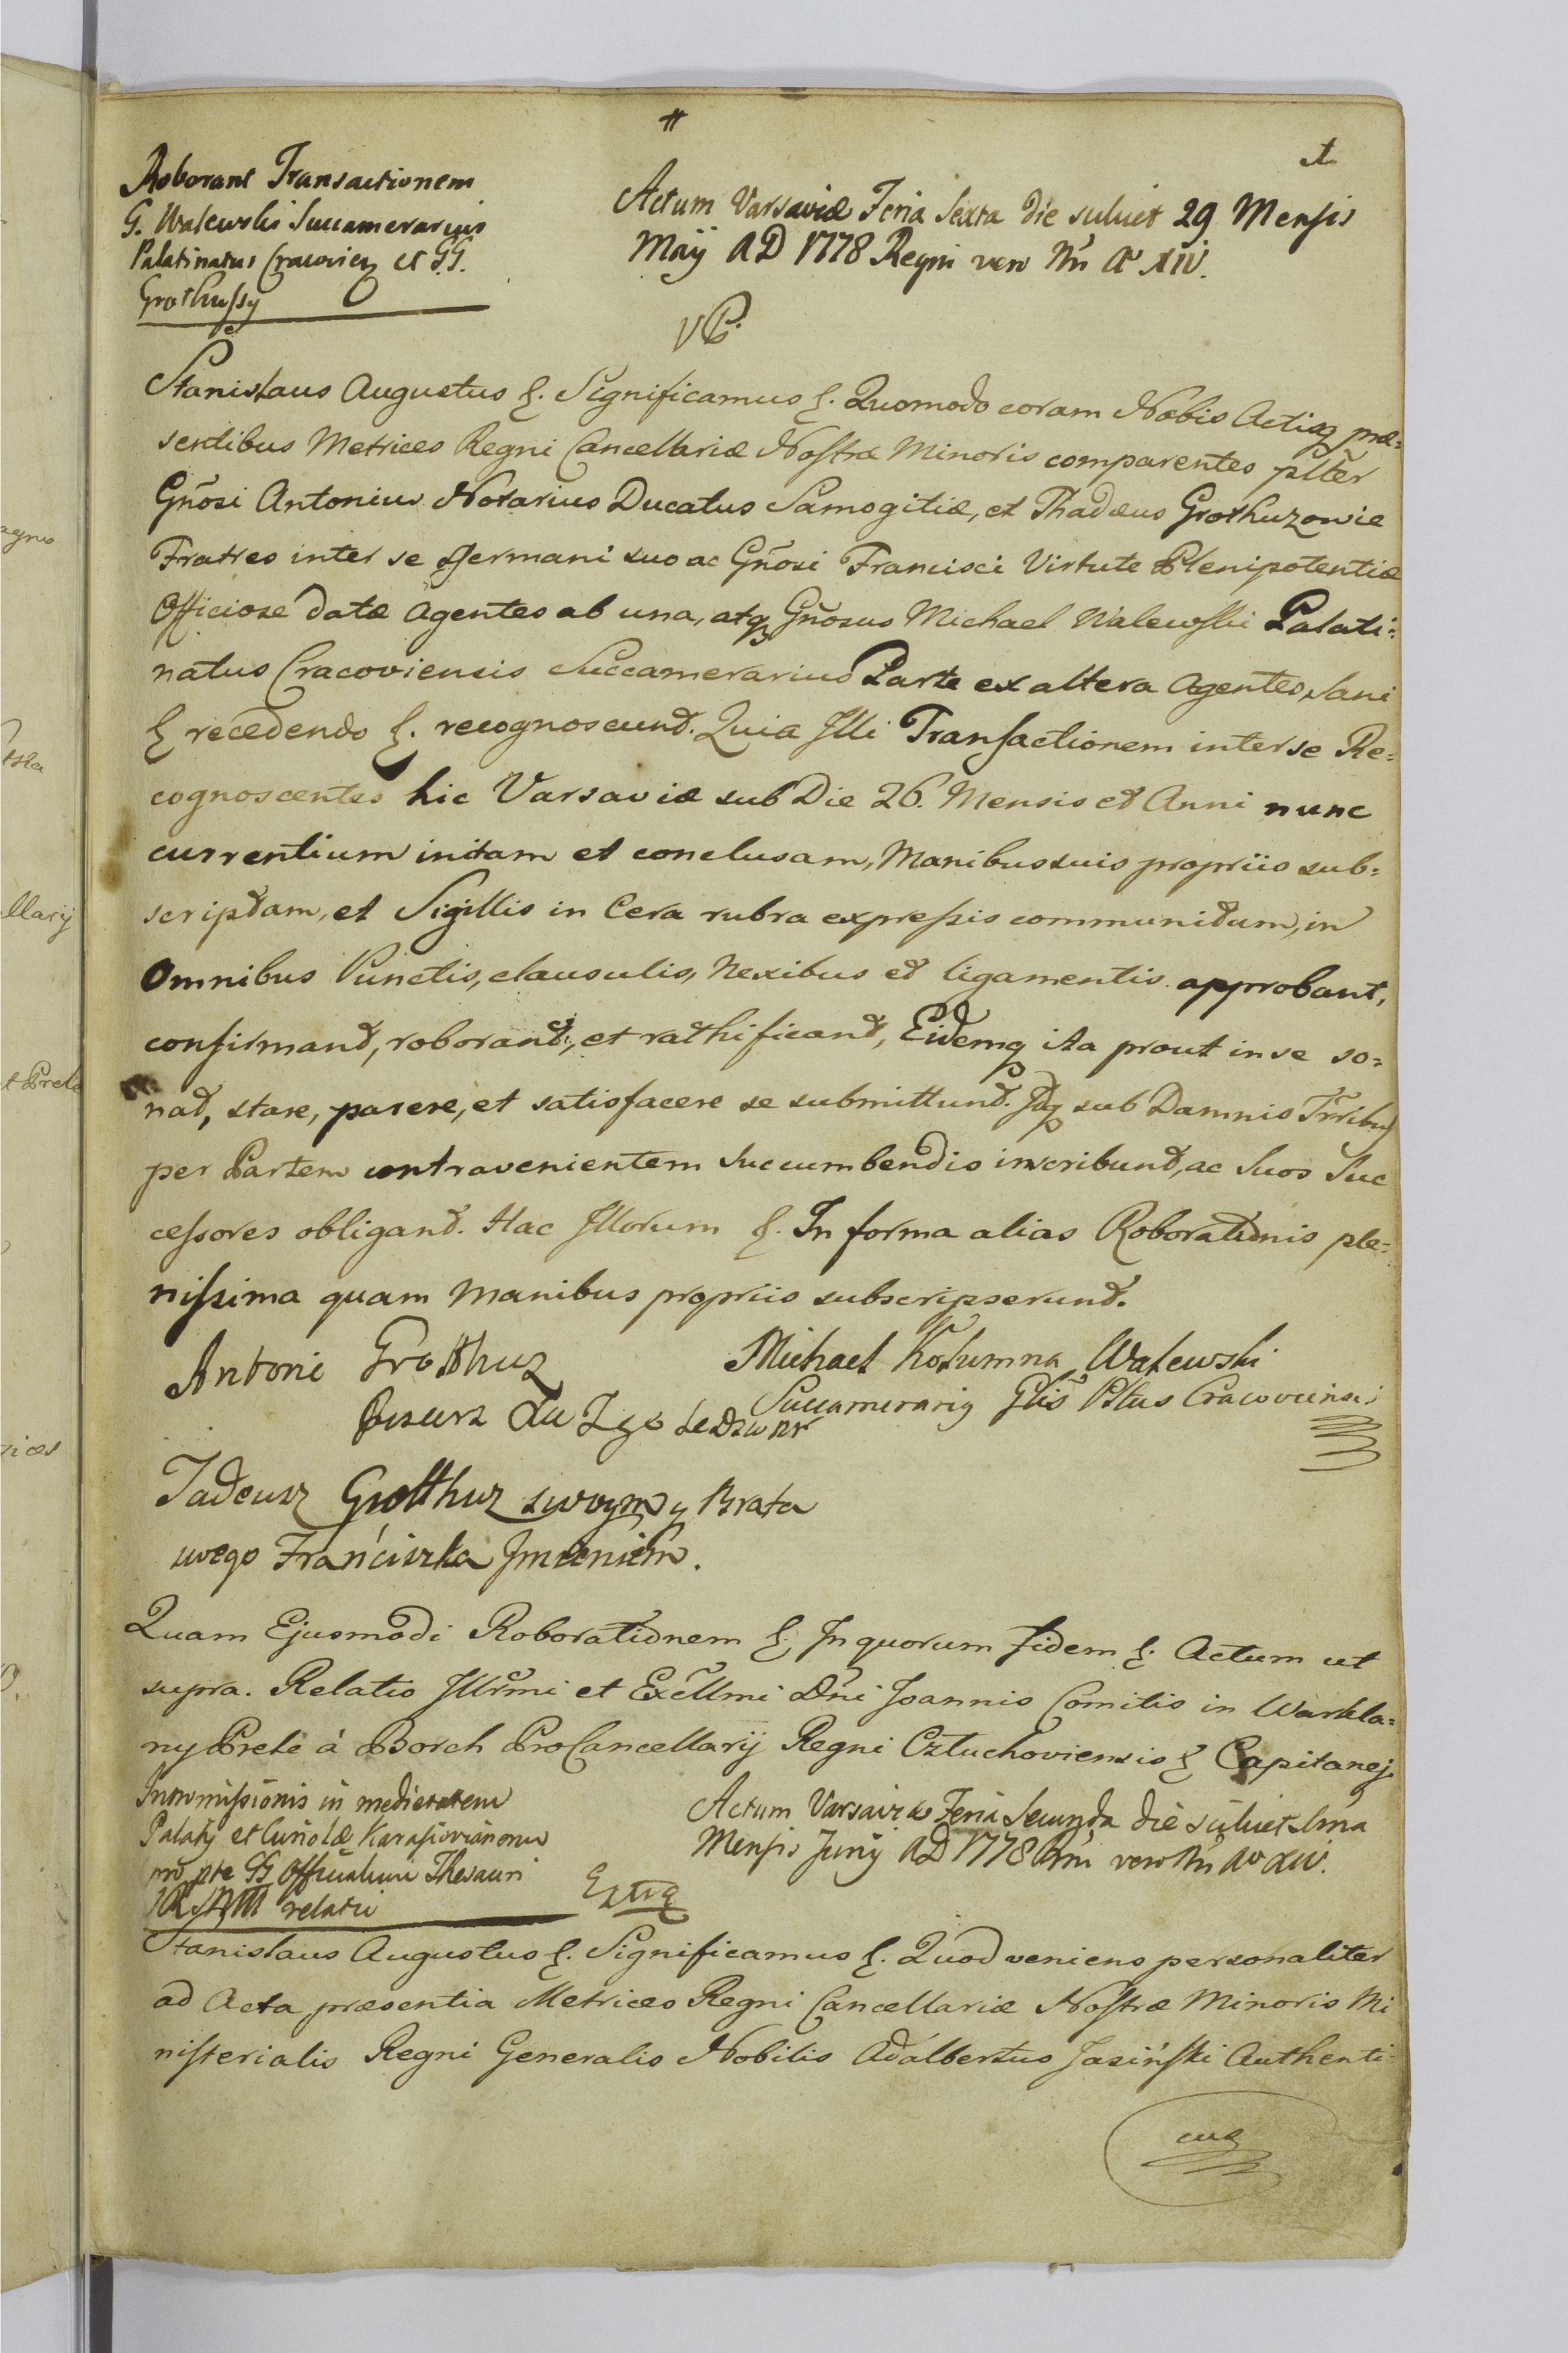 Roborant Transactionem
G. Walewski Succamerarius
Palatinatus Cracovien et GG.
Grothussy
Actum Varsaviæ Feria Sexta die scilicet 29 Mensis
Maÿ AD 1778 Regni vero Nri Aº XIV.
Stanislaus Augustus &. Significamus &. Quomodo coram Nobis Actisq præ=
sentibus Metrices Regni Cancellariæ Nostræ Minoris comparentes pltēr
Gñosi Antonius Notarius Ducatus Samogitiæ, et Thadæus Grothuzowie
Fratres inter se Germani suo ac Gñosi Francisci Virtute Plenipotentiæ
Officiose datæ Agentes ab una, atq Gñosus Michael Walewski Palati=
natus Cracoviensis Succamerarius Parte ex altera Agentes, Sani
& recedendo &. recognoscunt. Quia Illi Transactionem inter se Re=
cognoscentes hic Varsaviæ sub Die 26. Mensis et Anni nunc
currentium initam et conclusam, Manibus suis propriis sub=
scriptam, et Sigillis in Cera rubra expressis communitam, in
Omnibus Punctis, clausulis, Nexibus et ligamentis approbant,
confirmant, roborant, et rathificant, Eidemq ita prout in se so=
nat, stare, parere, et satisfacere se submittunt. Idq sub Damnis Trribus
per Partem contravenientem Succumbendis inscribunt, ac Suos Suc
cessores obligant. Hac Illorum &. In forma alias Roborationis ple=
nissima quam Manibus propriis subscripserunt.
Antoni Grotthuz
Michael Kolumna Walewski
Succamerariq Glis Pltus Cracoviensis
Pisarz
Tadeusz Grotthuz swoym y Brata
swego Franciszka Imieniem.
Quam Ejusmodi Roborationem & In quorum fidem &. Actum ut
supra. Relatio Illrmi et Excllmi Dñi Joannis Comitis in Warkla=
ny Prele à Borch ProCancellarÿ Regni Czluchoviensis & Capitanej.
Intromissionis in medietatem
Palatÿ et Curiolæ Karasiovianorum
pro pte GG Officialium Thesauri
relatio
Actum Varsaviæ Feria Secunda die scilicet 1ma
Mensis Junÿ AD 1778 Rni vero Nri Aº XIV.
Stanislaus Augustus &. Significamus &. Quod veniens personaliter
ad Acta præsentia Metrices Regni Cancellariæ Nostræ Minoris Mi
nisterialis Regni Generalis Nobilis Adalbertus Jasiński Authenti=